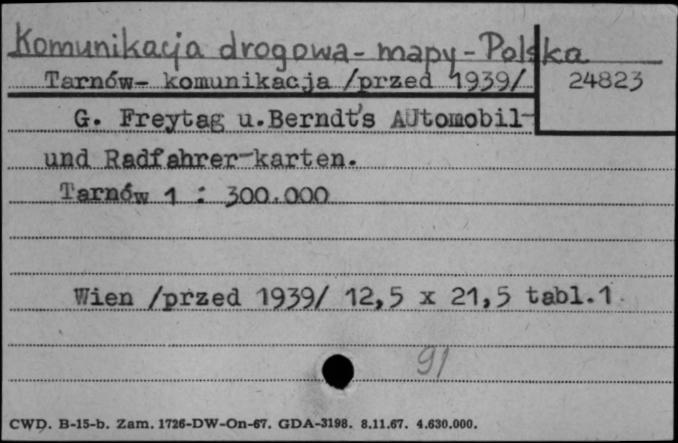 Komunikacja drogowa - mapy - Polska
Tarnów- komunikacja /przed 1939/
24823
G. Freytag u.Berndt's AUtomobil-
und Radfahrer-karten.
Tarnów 1 : 300.000
Wien /przed 1939/ 12,5 x 21,5 tabl.1
91
CWD. B-15-b. Zam. 1726-DW-On-67. GDA-3198. 8.11.67. 4.630.000.